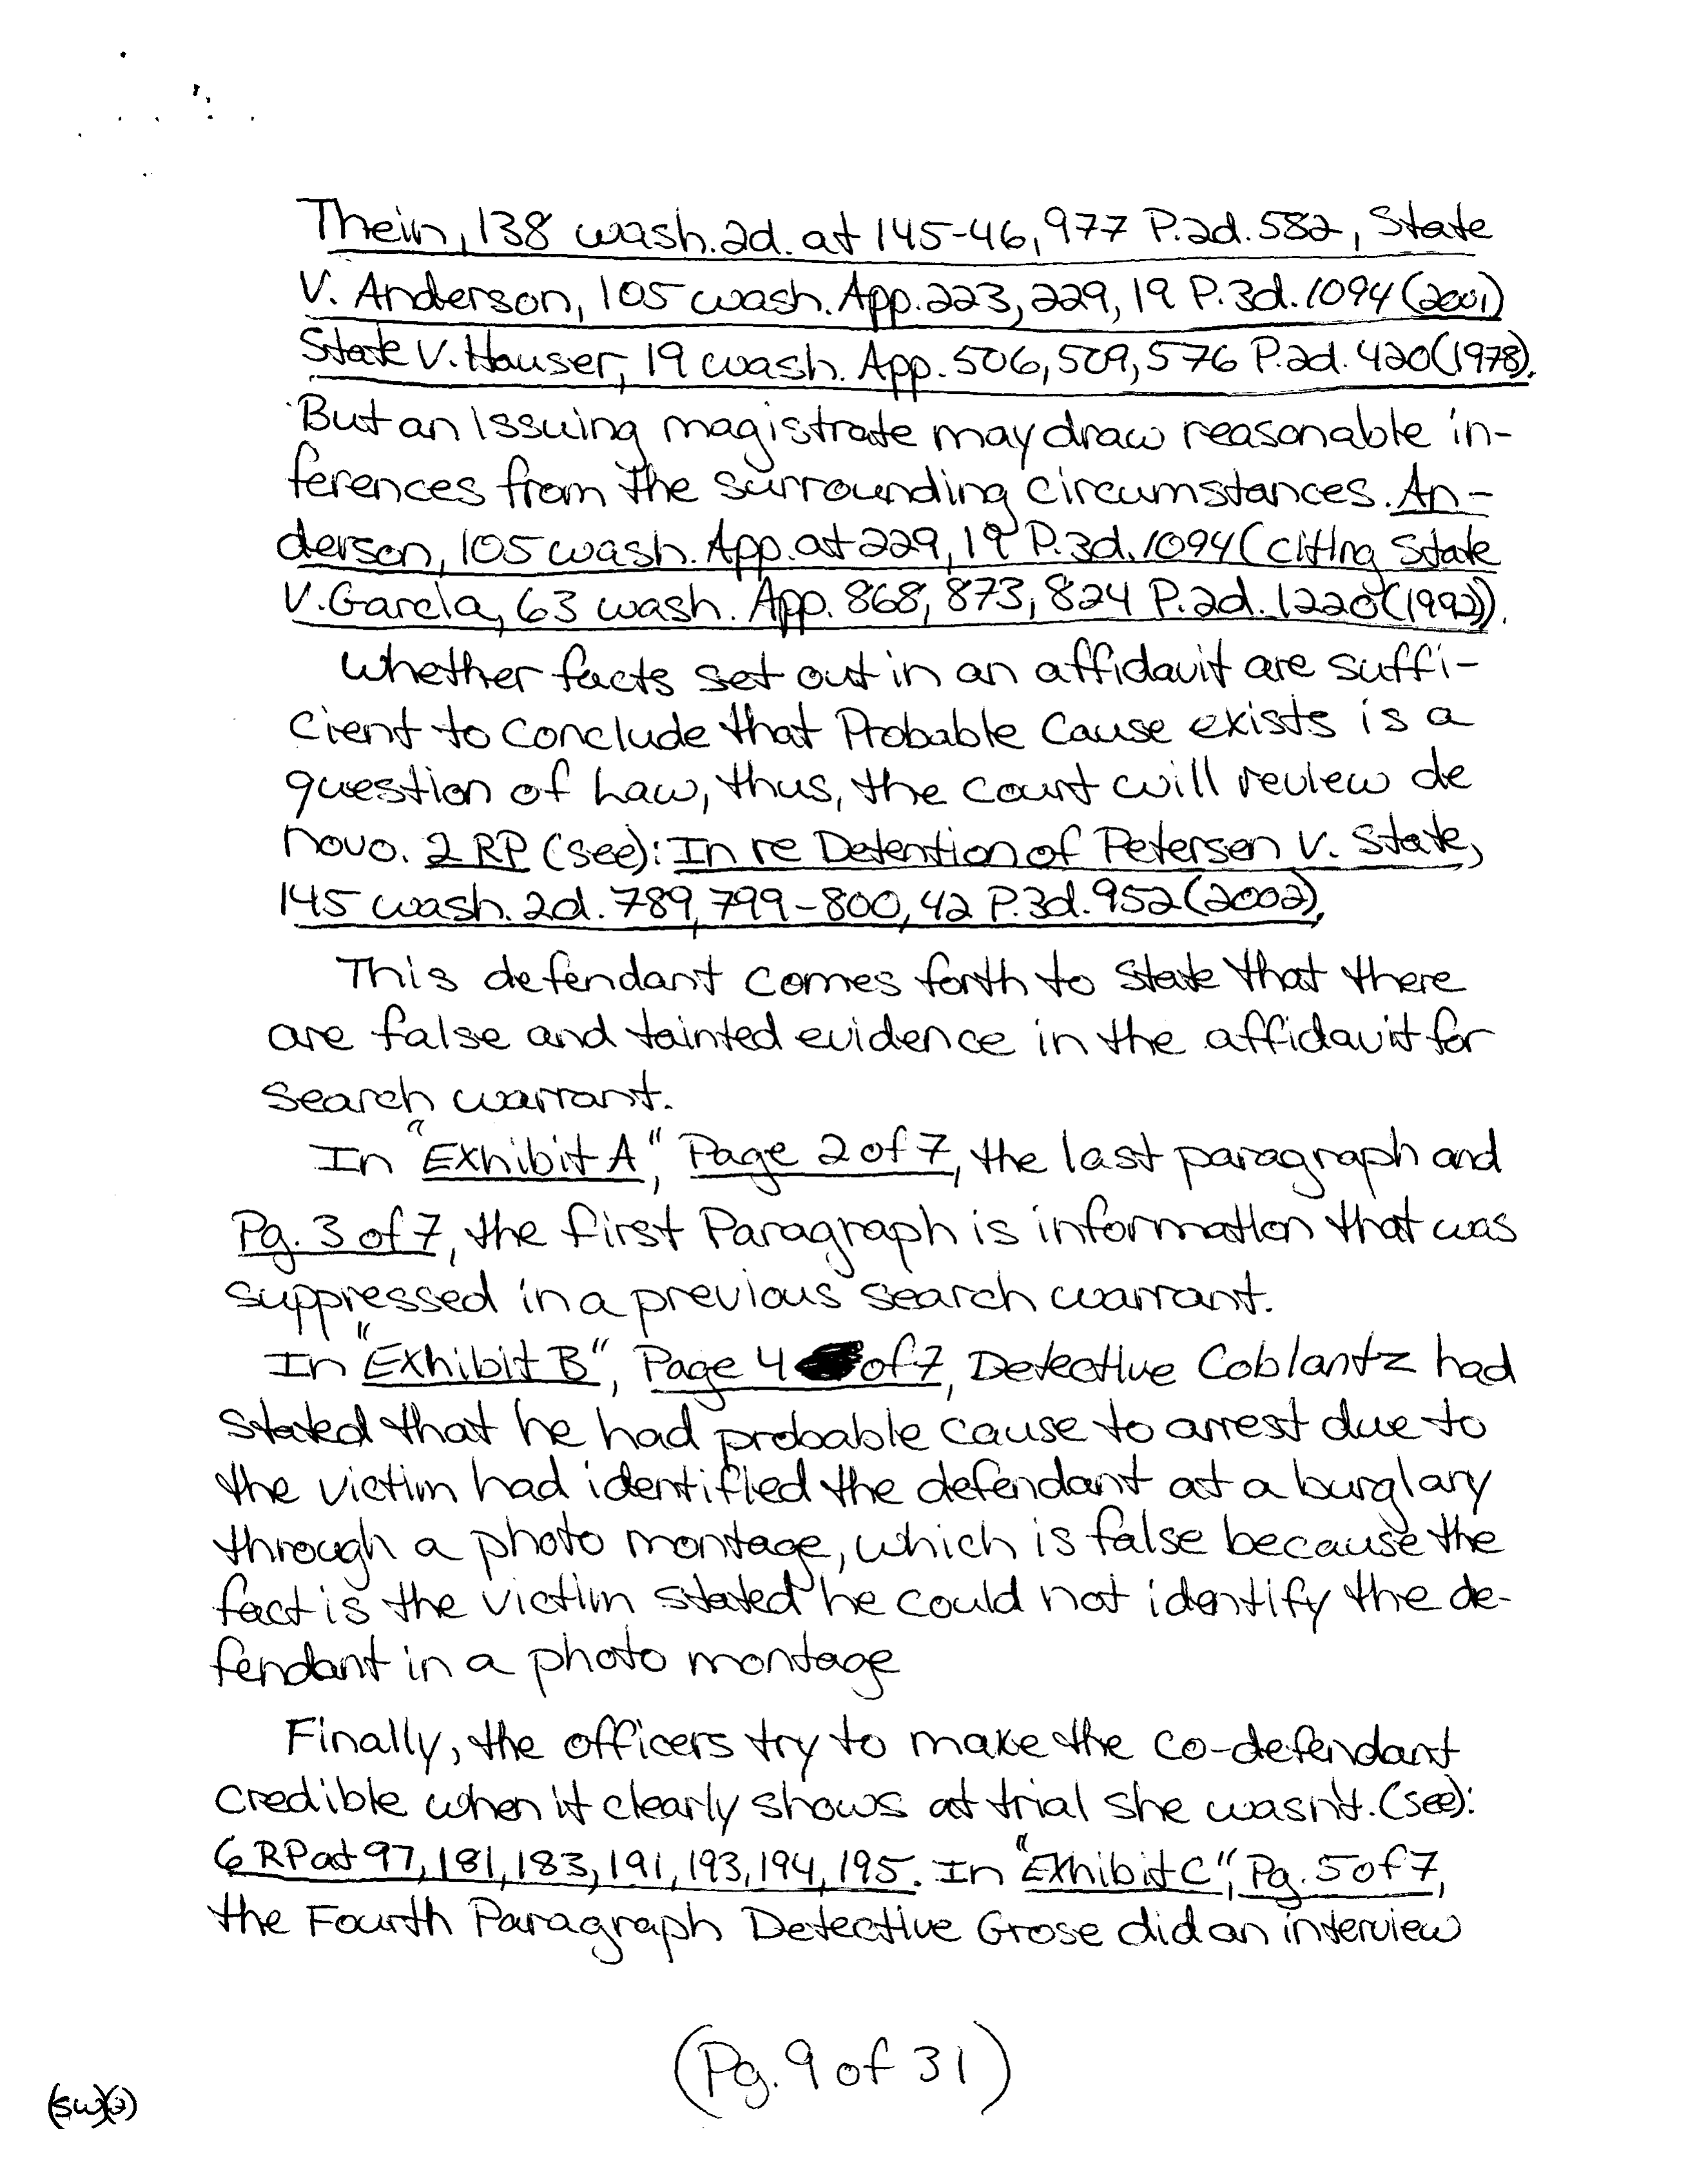 Thein, 138 wash.2d. at 145-46, 977 P.2d. 582, State
V. Anderson, 105 wash. App. 223, 229, 19 P.3d. 1094 (2001)
State V. Hauser, 19 wash. App. 506, 509, 576 P.2d. 420 (1978).
But an Issuing magistrate may draw reasonable in-
ferences from the surrounding circumstances. An-
derson, 105 wash. App. at 229, 19 P.3d. 1094 (citing State
V. Garcia, 63 wash. App. 868, 873, 824 P.2d. 1220 (1992)).
Whether facts set out in an affidavit are suffi-
cient to conclude that Probable Cause exists is a
question of Law, thus, the court will review de
novo. 2 RP (see): In re Detention of Petersen V. State,
145 wash. 2d. 789, 799-800, 42 P.3d. 952 (2002),
This defendant comes forth to state that there
are false and tainted evidence in the affidavit for
search warrant.
In "Exhibit A", Page 2 of 7, the last paragraph and
Pg. 3 of 7, the first Paragraph is information that was
suppressed in a previous search warrant.
In "Exhibit B", Page 4 of 7, Detective Coblantz had
stated that he had probable cause to arrest due to
the victim had identified the defendant at a burglary
through a photo montage, which is false because the
fact is the victim stated he could not identify the de-
fendant in a photo montage
Finally, the officers try to make the co-defendant
credible when it clearly shows at trial she wasn't. (see):
6 RP at 97, 181, 183, 191, 193, 194, 195. In "Exhibit C", Pg. 5 of 7,
the Fourth Paragraph Detective Grose did an interview
(Pg. 9 of 31)